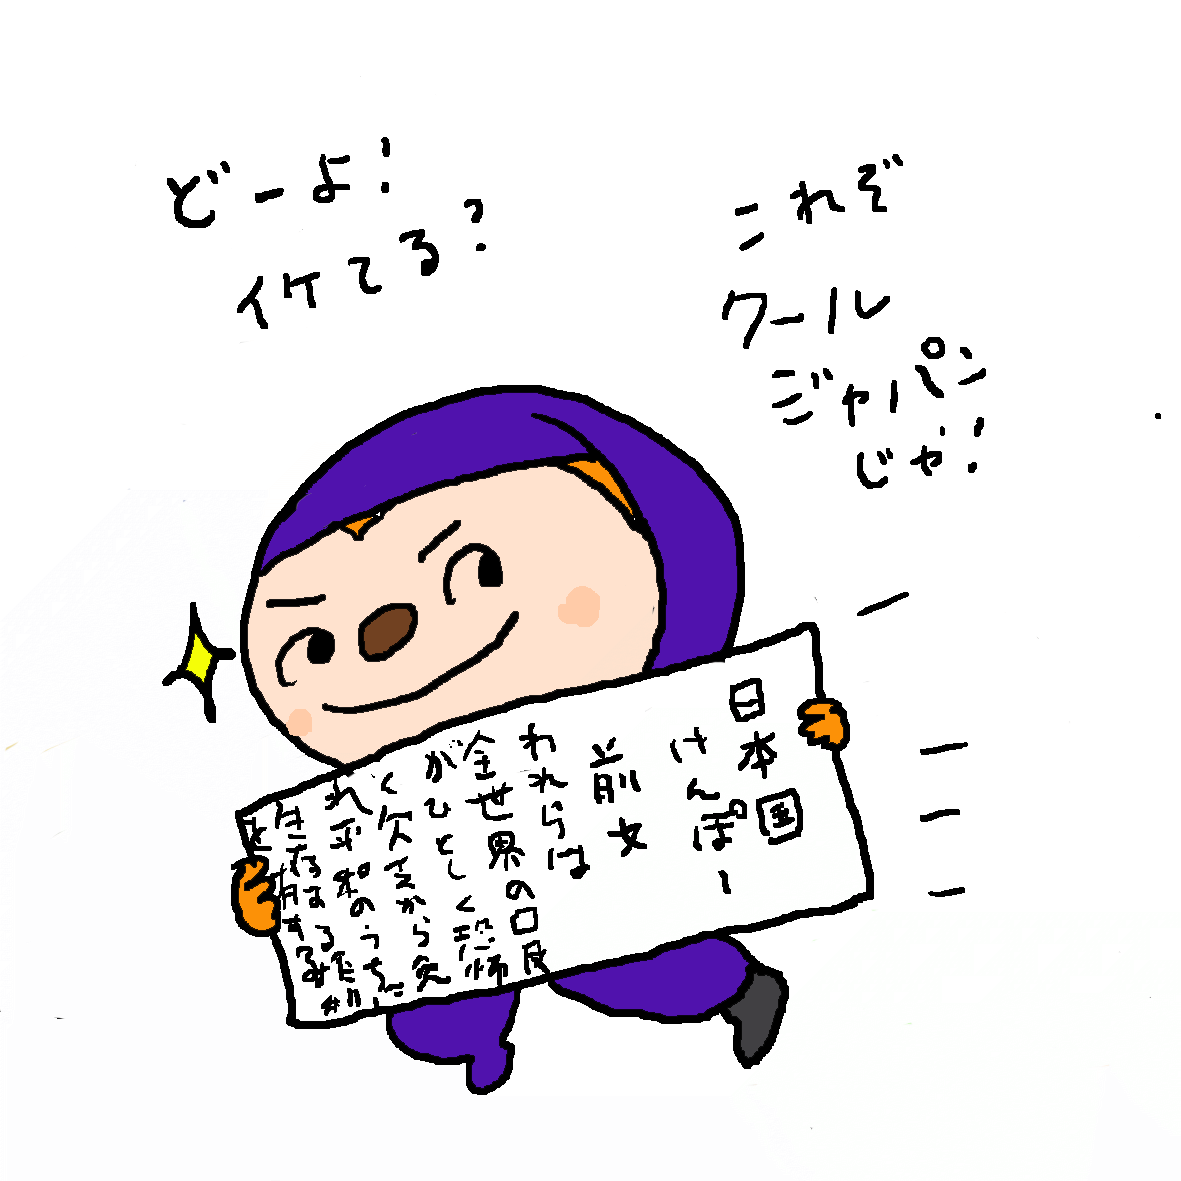 どーよ!
イケてる?
これぞ
クール
ジャパン
じゃ!
日本国
けんぽー
前文
われらは
全世界の国民
がひとしく恐怖
く欠乏から免
れ平和のうちに